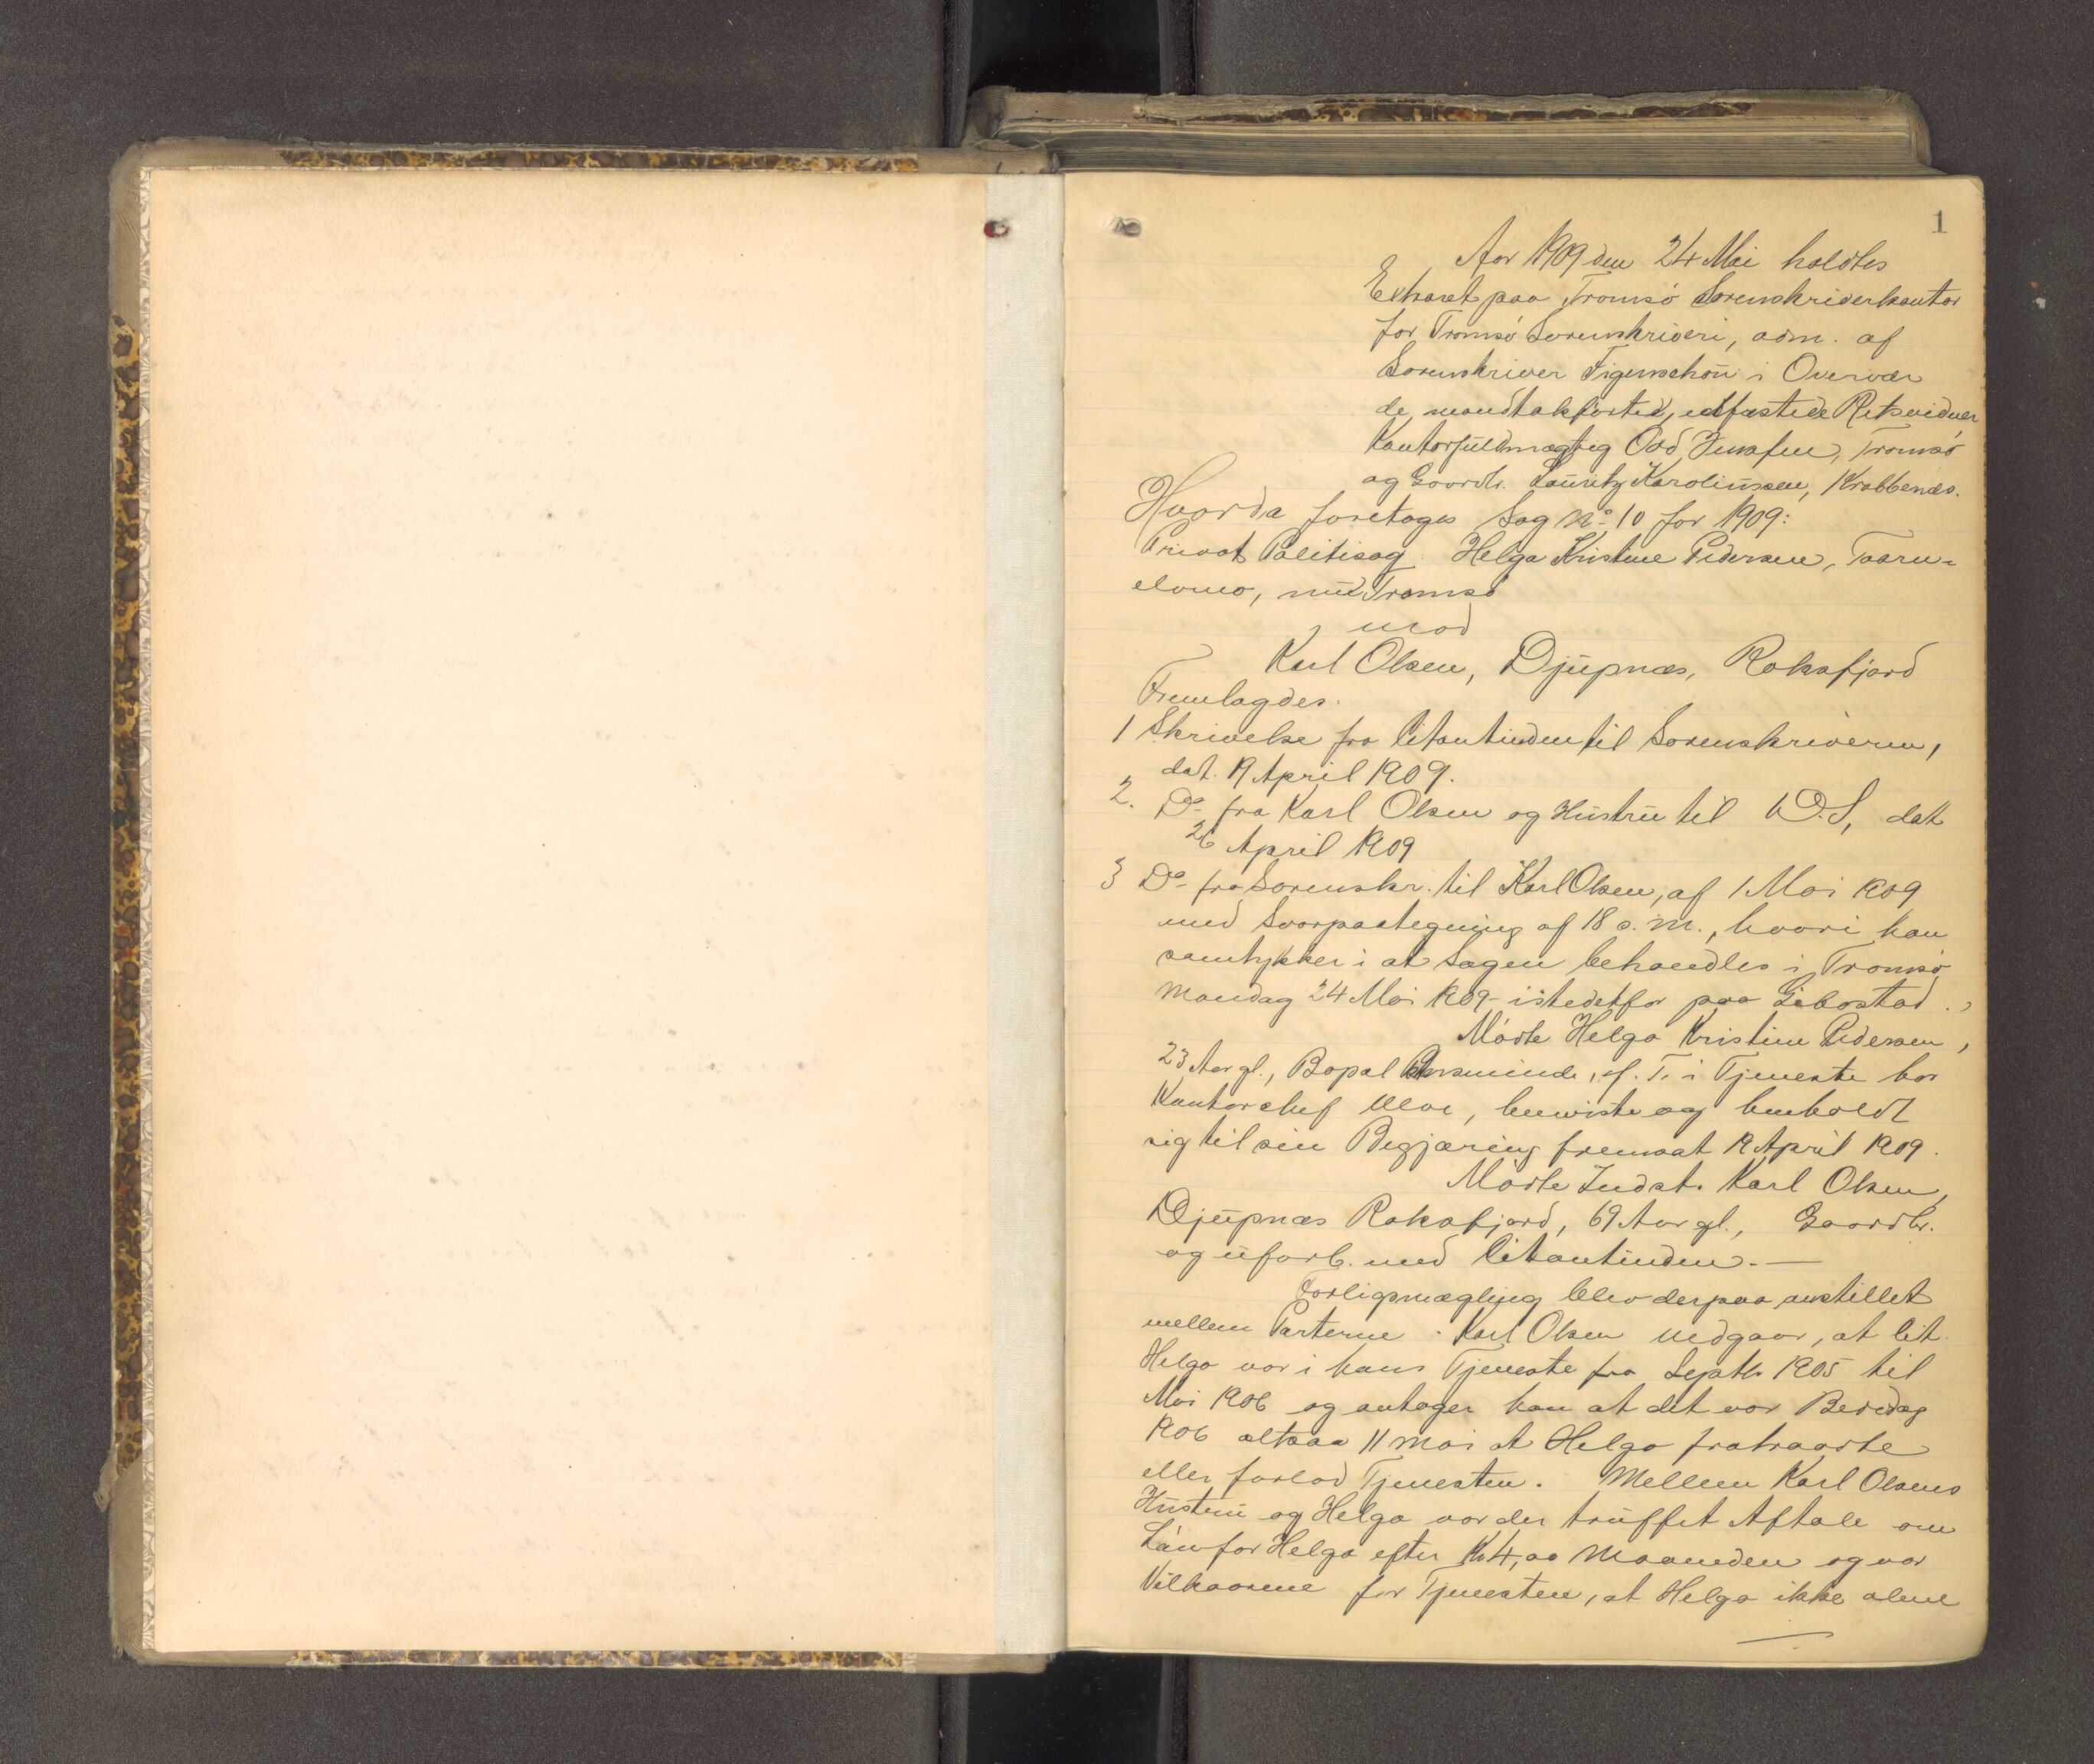 1
Aar 1909 den 24 Mai holdtes
Extraret paa Tromsø Sorenskriverkontor
for Tromsø Sorenskriveri, adm. af
Sorenskriver Figenschou i Overvær
de mandtalsførte, edfæstede Retsvidner
Kontorfuldmægtig Odd Jensen, Tromsø
og Gaardb. Lauritz Karoliussen, Krabbenæs.
Hvorda foretoges Sag No 10 for 1909:
Privat Politisag. Helga Kristine Pedersen, Taarn-
elvmo, nu Tromsø
mod
Karl Olsen, Djupnæs, Rokafjord
Fremlagdes.
1 Skrivelse fra Citantinden til Sorenskriveren,
dat. 19 April 1909.
2. Do fra Karl Olsen og Hustru til D.S, dat
26 April 1909
3 Do fra Sorenskr. til Karl Olsen, af 1 Mai 1909
med Svarpaategning af 18 s.M., hvori han
samtykker i at Sagen behandles i Tromsø
Mandag 24 Mai 1909 istedetfor paa Gibostad.
Mødte Helga Kristine Pedersen,
23 Aar gl., Bopæl, f. T. i Tjeneste hos
Kontorchef Moe, henviste og henholdt
sig til sin Begjæring fremsat 19 April 1909.
Mødte Indst. Karl Olsen,
Djupnæs Rokafjord, 69 Aar gl., Gaardbr.
og uforb. med Citantinden. —
Forligsmægling blev derpaa anstillet
mellem Parterne. Karl Olsen vedgaar, at Cit.
Helga var i hans Tjeneste fra Septb. 1905 til
Mai 1906 og antager han at det var Bededag
1906 altsaa 11 Mai at Helga fratraadte
eller forlod Tjenesten. Mellem Karl Olsens
Hustru og Helga var der truffet Aftale om
Løn for Helga efter Kr 4,00 Maaneden og var
Vilkaarene for Tjenesten, at Helga ikke alene